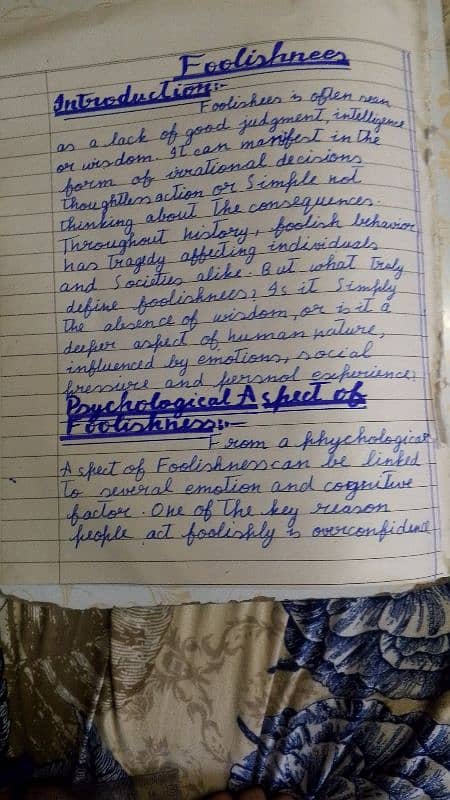 Foolishnees
Introduction:-
Foolishees is often seen
as a lack of good judgment, intelligence
or wisdom. It can manifest in the
form of irrational decisions
thoughtless action or Simple not
thinking about the consequences.
Throughout history, foolish behavior
has tragedy affecting individuals
and Societies alike. But what truly
define foolishnees? Is it Simply
the absence of wisdom, or is it a
deeper aspect of human nature,
influenced by emotions, social
pressure and persnol experience?
Psychological Aspect of
Foolishness:-
From a phychological
Aspect of Foolishness can be linked
to several emotion and cognitive
factor. One of the key reason
people act foolishly is overconfidence